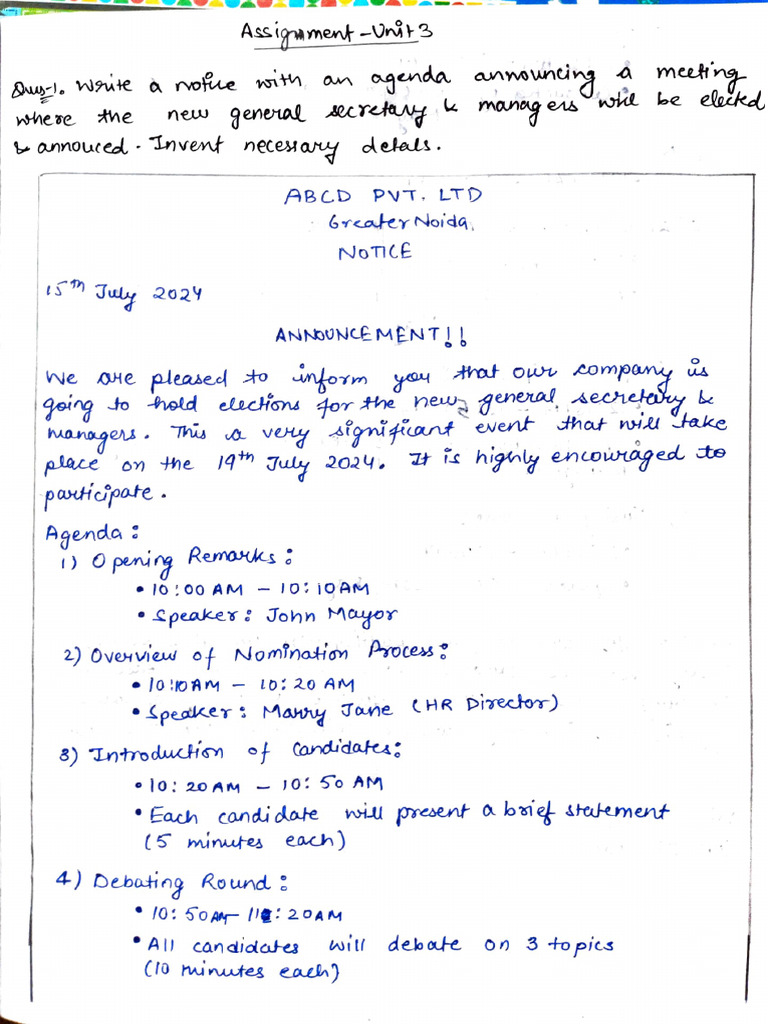 Assignment - Unit 3
Ques-1. Write a notice with an agenda announcing a meeting
where the new general secretary & managers will be elected
& annouced. Invent necessary detals.
ABCD PVT. LTD
Greater Noida.
NOTICE
15th July 2024
ANNOUNCEMENT!!
We are pleased to inform you that our company is
going to hold elections for the new general secretary &
managers. This is a very significant event that will take
place on the 19th July 2024. It is highly encouraged to
participate.
Agenda:
1) Opening Remarks:
• 10:00 AM - 10:10 AM
• Speaker: John Mayor
2) Overview of Nomination Process:
• 10:10 AM - 10:20 AM
• Speaker: Marry Jane (HR Director)
3) Introduction of Candidates:
• 10:20 AM - 10:50 AM
• Each candidate will present a brief statement
(5 minutes each)
4) Debating Round:
• 10:50 AM - 11:20 AM
• All candidates will debate on 3 topics
(10 minutes each)